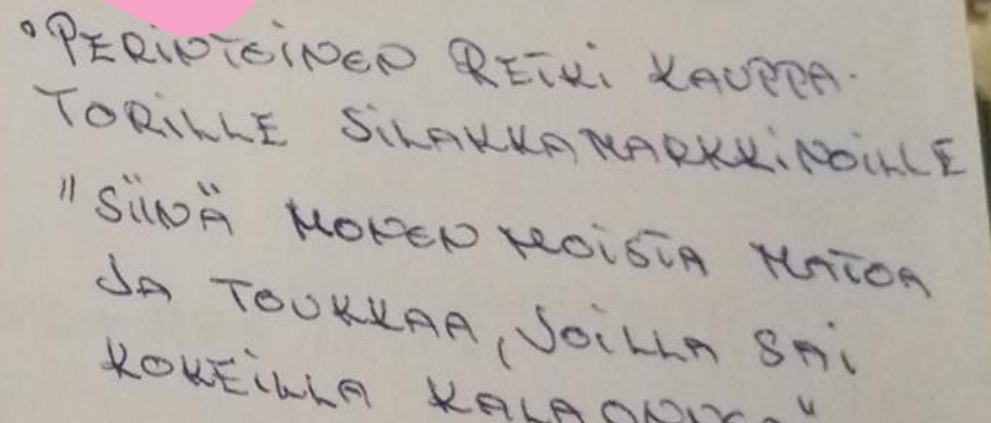 °PERINTEINEN RETKI KAUPPA-
TORILLE SILAKKAMARKKINOILLE
"SIINÄ MONEN MOISTA MATOA
JA TOUKKAA, JOILLA SAI
KOKEILLA KALAONNEA"